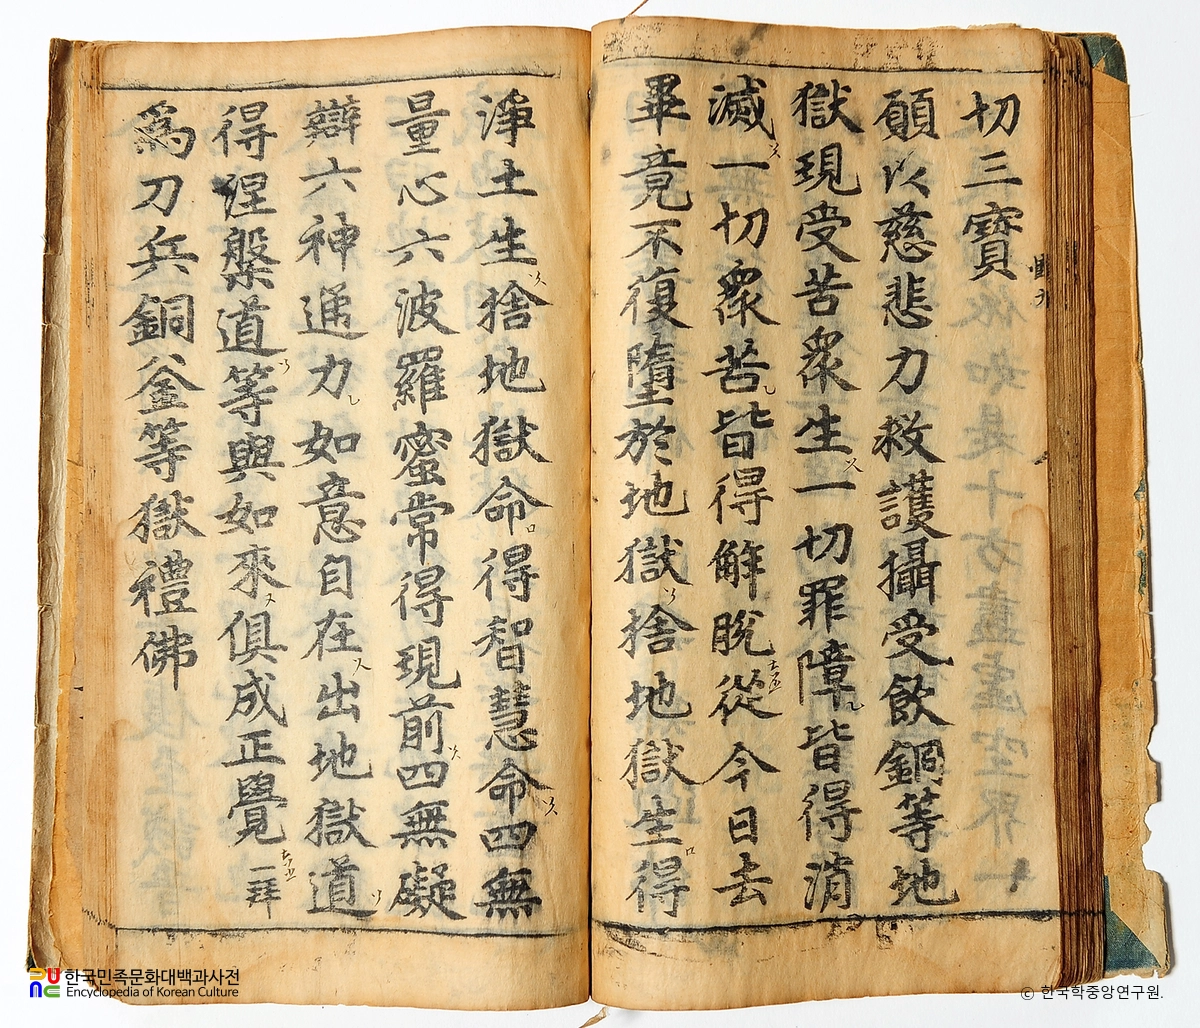 切三寶
願以慈悲力救護攝受飮銅等地
獄現受苦衆生一切罪障皆得消
滅一切衆苦皆得解脫從今日去
畢竟不復墮於地獄捨地獄生得
淨土生捨地獄命得智慧命四無
量心六波羅蜜常得現前四無礙
辯六神通力如意自在出地獄道
得涅槃道等與如來俱成正覺一拜
爲刀兵銅釜等獄禮佛
한국민족문화대백과사전
Encyclopedia of Korean Culture
ⓒ 한국학중앙연구원.